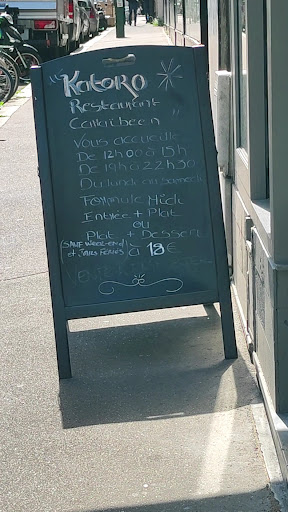 "KatoRo
Restaurant
Caraibeen"
Vous accueille
De 12h00 à 15h
De 19h à 22h30
Du lundi au samedi
Formule Midi
Entrée + Plat
ou
Plat + Dessert
(SAUF WEEK-END
et Jours Fériés)
à 18€